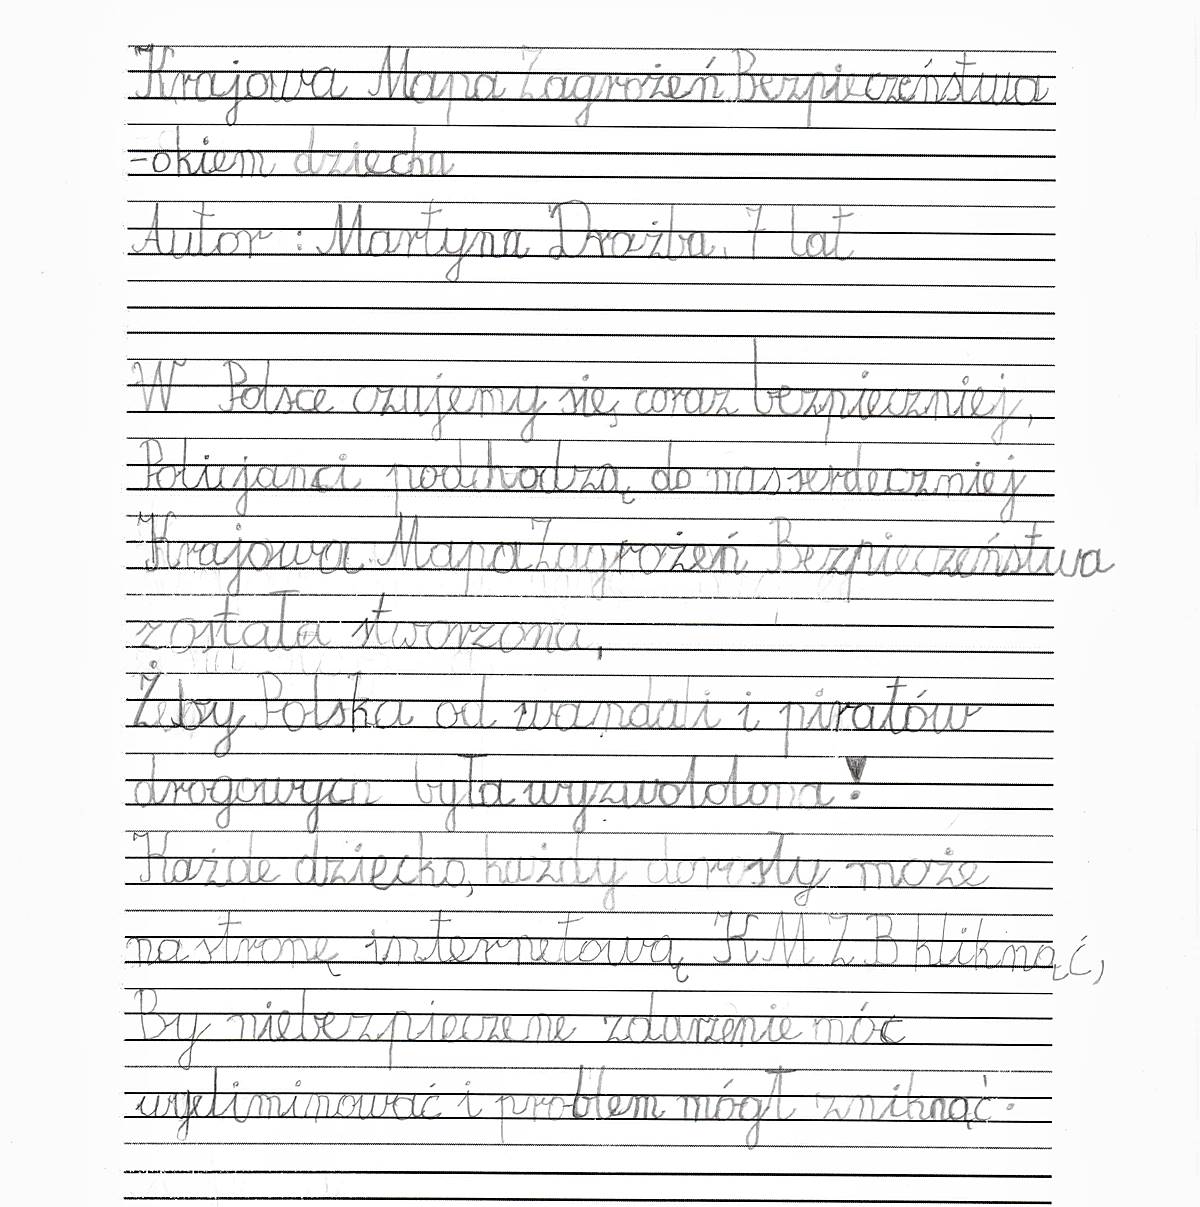 Krajowa Mapa Zagrożeń Bezpieczeństwa
-okiem dziecka
Autor : Martyna Drażba. 7 lat
W Polsce czujemy się coraz bezpieczniej,
Policjanci podchodzą do nas serdeczniej
Krajowa Mapa Zagrożeń Bezpieczeństwa
została stworzona,
Żeby Polska od wandali i piratów
drogowych była wyzwololona!
Każde dziecko, każdy dorosły może
na stronę internetową KMZB kliknąć,
By niebezpieczene zdarzenie móc
wyeliminować i problem mógł zniknąć.